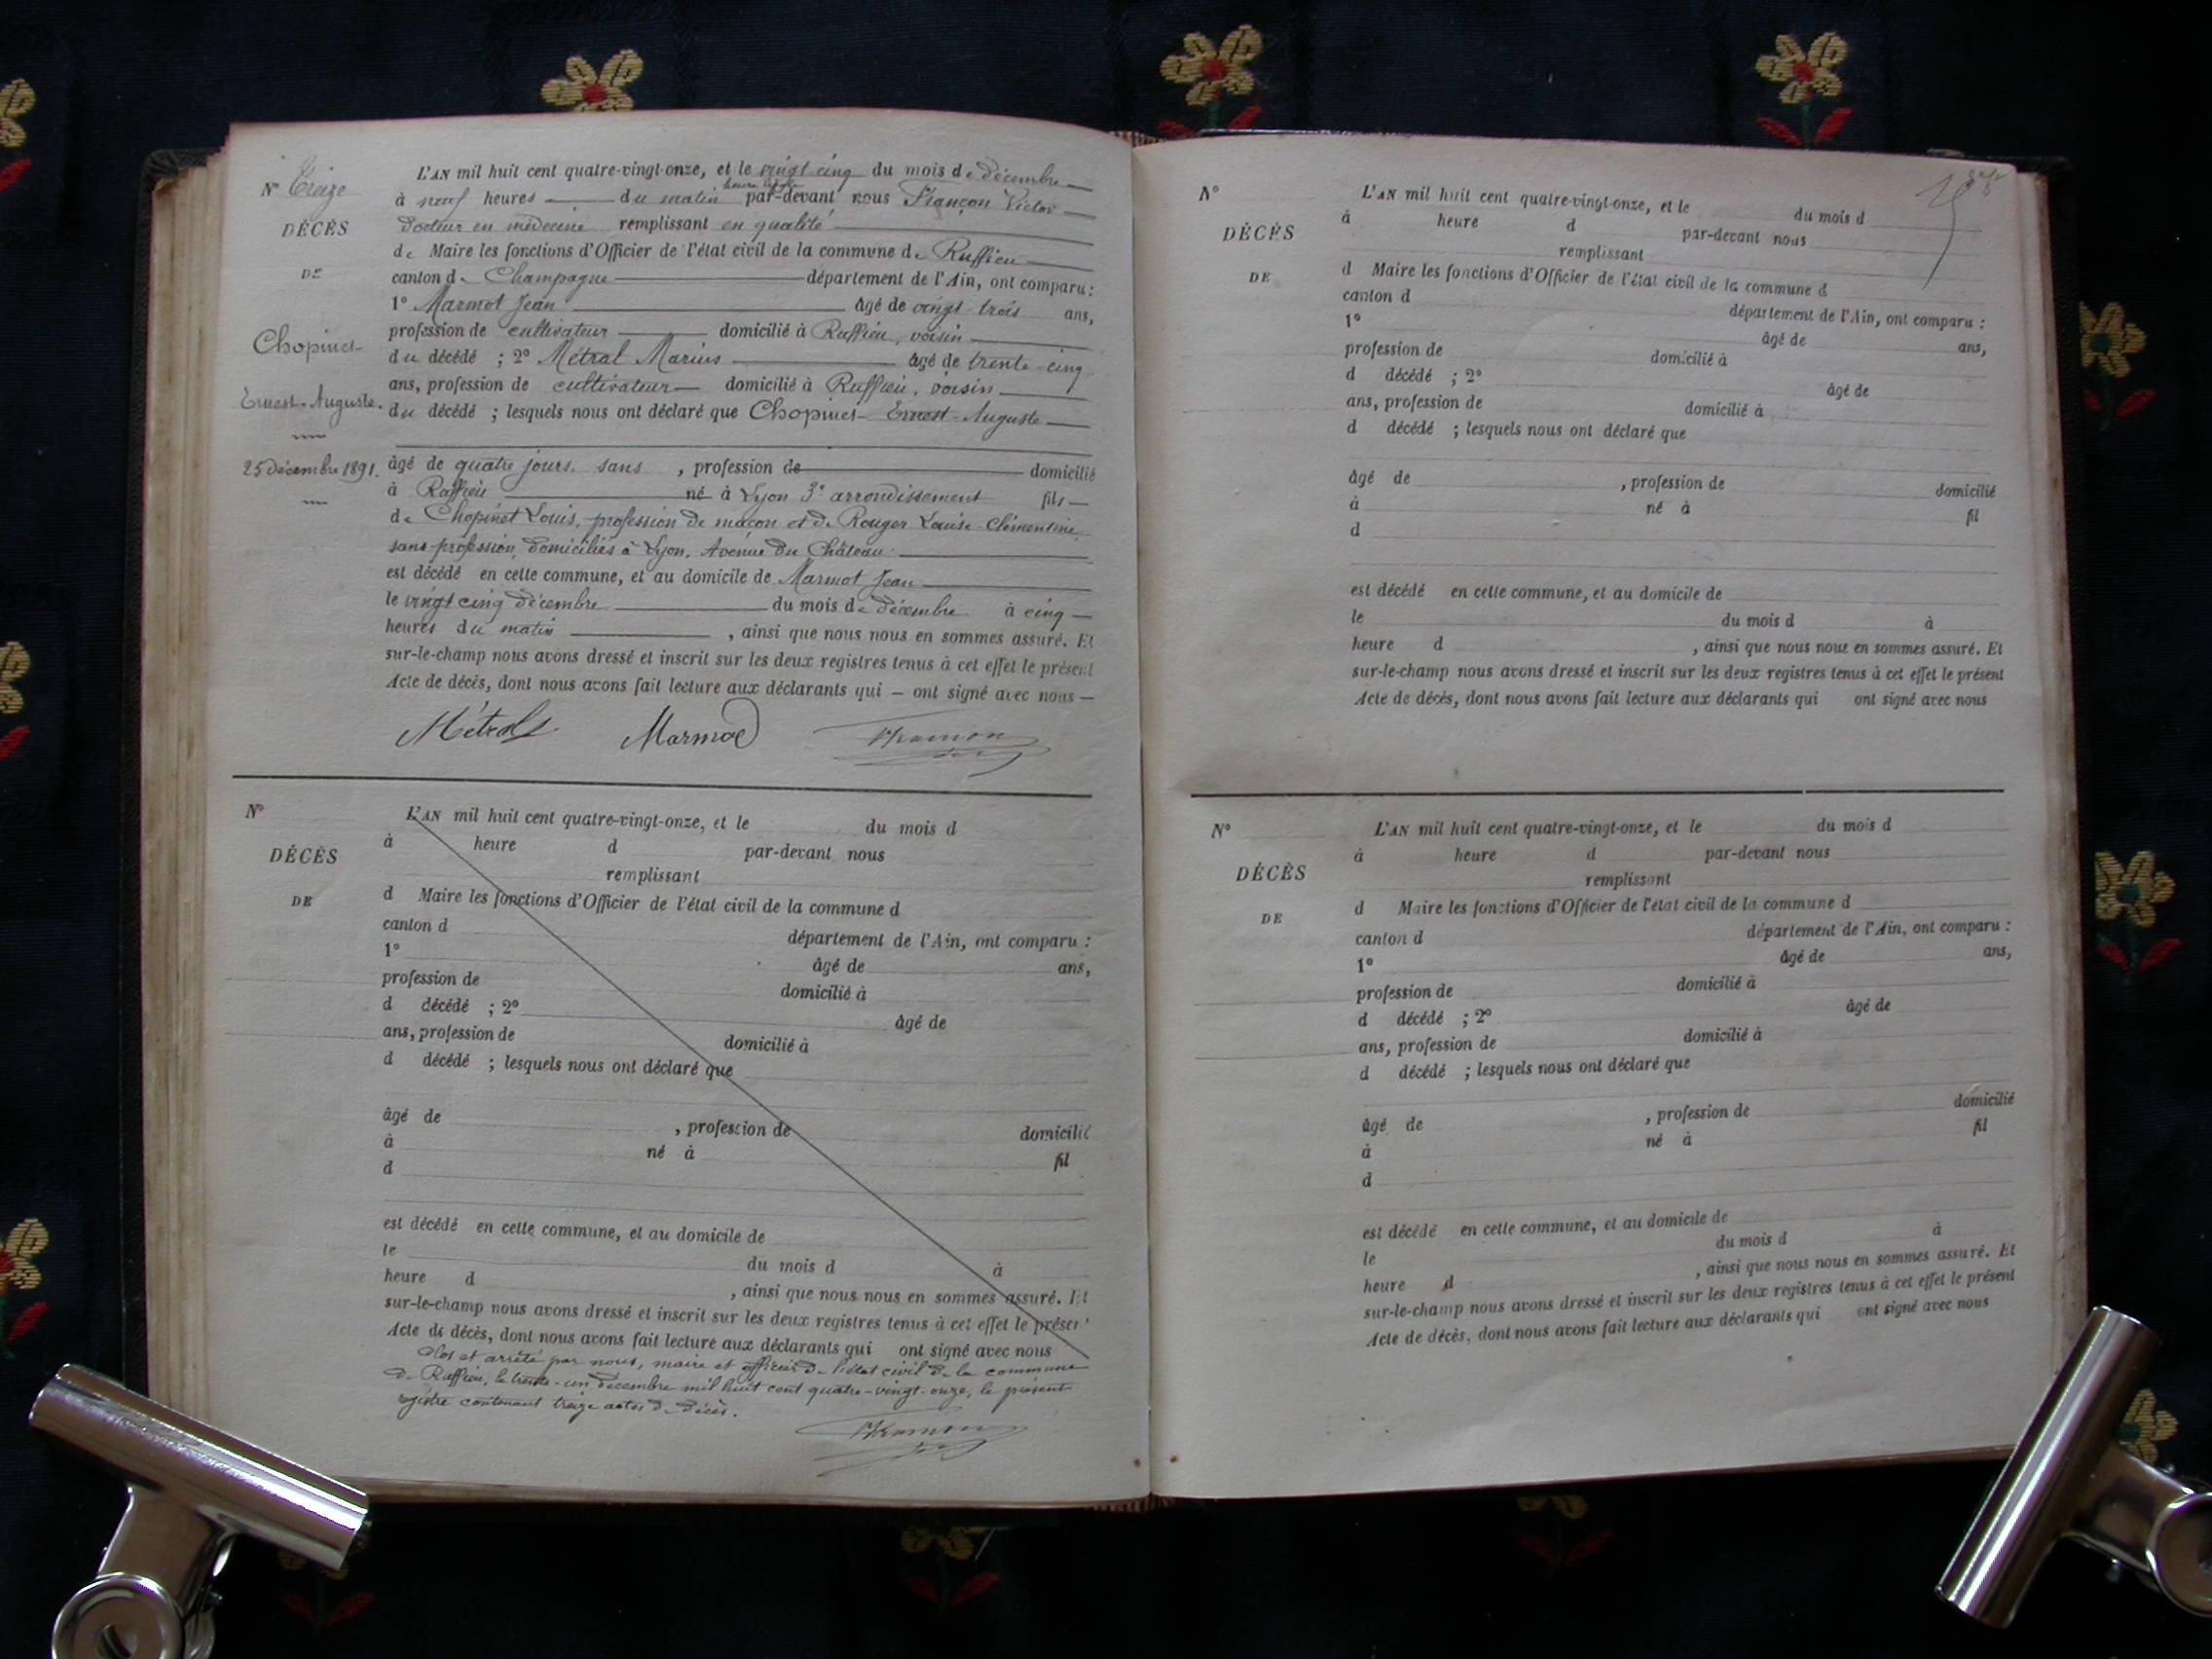 N° Treize
DÉCÈS
DE
Chopinet
Ernest-Auguste.
25 décembre 1891.
L'AN mil huit cent quatre-vingt-onze, et le vingt cinq du mois de décembre
à neuf heures du matin heure légale par-devant nous Françon Victor
docteur en médecine remplissant en qualité
de Maire les fonctions d'Officier de l'état civil de la commune de Ruffieu
canton de Champagne département de l'Ain, ont comparu :
1° Marmot Jean âgé de vingt-trois ans,
profession de cultivateur domicilié à Ruffieu, voisin
du décédé ; 2° Métral Marius âgé de trente-cinq
ans, profession de cultivateur domicilié à Ruffieu, voisin
du décédé ; lesquels nous ont déclaré que Chopinet Ernest-Auguste
âgé de quatre jours, sans , profession de domicilié
à Ruffieu né à Lyon 3e arrondissement fils
de Chopinet Louis, profession de maçon et de Rouger Louise-Clémentine,
sans profession, domiciliés à Lyon, Avenue du Château
est décédé en cette commune, et au domicile de Marmot Jean
le vingt cinq décembre du mois de décembre à cinq
heures du matin , ainsi que nous nous en sommes assuré. Et
sur-le-champ nous avons dressé et inscrit sur les deux registres tenus à cet effet le présent
Acte de décès, dont nous avons fait lecture aux déclarants qui – ont signé avec nous –
Métral Marmot
N°
DÉCÈS
DE
L'AN mil huit cent quatre-vingt-onze, et le du mois d
à heure d par-devant nous
remplissant
d Maire les fonctions d'Officier de l'état civil de la commune d
canton d département de l'Ain, ont comparu :
1° âgé de ans,
profession de domicilié à
d décédé ; 2° âgé de
ans, profession de domicilié à
d décédé ; lesquels nous ont déclaré que
âgé de , profession de domicilié
à né à fil
d
est décédé en cette commune, et au domicile de
le du mois d à
heure d , ainsi que nous nous en sommes assuré. Et
sur-le-champ nous avons dressé et inscrit sur les deux registres tenus à cet effet le présent
Acte de décès, dont nous avons fait lecture aux déclarants qui ont signé avec nous
Clos et arrêté par nous, maire et officier de l'état civil de la commune
de Ruffieu, le trente-un décembre mil huit cent quatre-vingt-onze, le présent
registre contenant treize actes de décès.
N°
DÉCÈS
DE
L'AN mil huit cent quatre-vingt-onze, et le du mois d
à heure d par-devant nous
remplissant
d Maire les fonctions d'Officier de l'état civil de la commune d
canton d département de l'Ain, ont comparu :
1° âgé de ans,
profession de domicilié à
d décédé ; 2° âgé de
ans, profession de domicilié à
d décédé ; lesquels nous ont déclaré que
âgé de , profession de domicilié
à né à fil
d
est décédé en cette commune, et au domicile de
le du mois d à
heure d , ainsi que nous nous en sommes assuré. Et
sur-le-champ nous avons dressé et inscrit sur les deux registres tenus à cet effet le présent
Acte de décès, dont nous avons fait lecture aux déclarants qui ont signé avec nous
N°
DÉCÈS
DE
L'AN mil huit cent quatre-vingt-onze, et le du mois d
à heure d par-devant nous
remplissant
d Maire les fonctions d'Officier de l'état civil de la commune d
canton d département de l'Ain, ont comparu :
1° âgé de ans,
profession de domicilié à
d décédé ; 2° âgé de
ans, profession de domicilié à
d décédé ; lesquels nous ont déclaré que
âgé de , profession de domicilié
à né à fil
d
est décédé en cette commune, et au domicile de
le du mois d à
heure d , ainsi que nous nous en sommes assuré. Et
sur-le-champ nous avons dressé et inscrit sur les deux registres tenus à cet effet le présent
Acte de décès, dont nous avons fait lecture aux déclarants qui ont signé avec nous